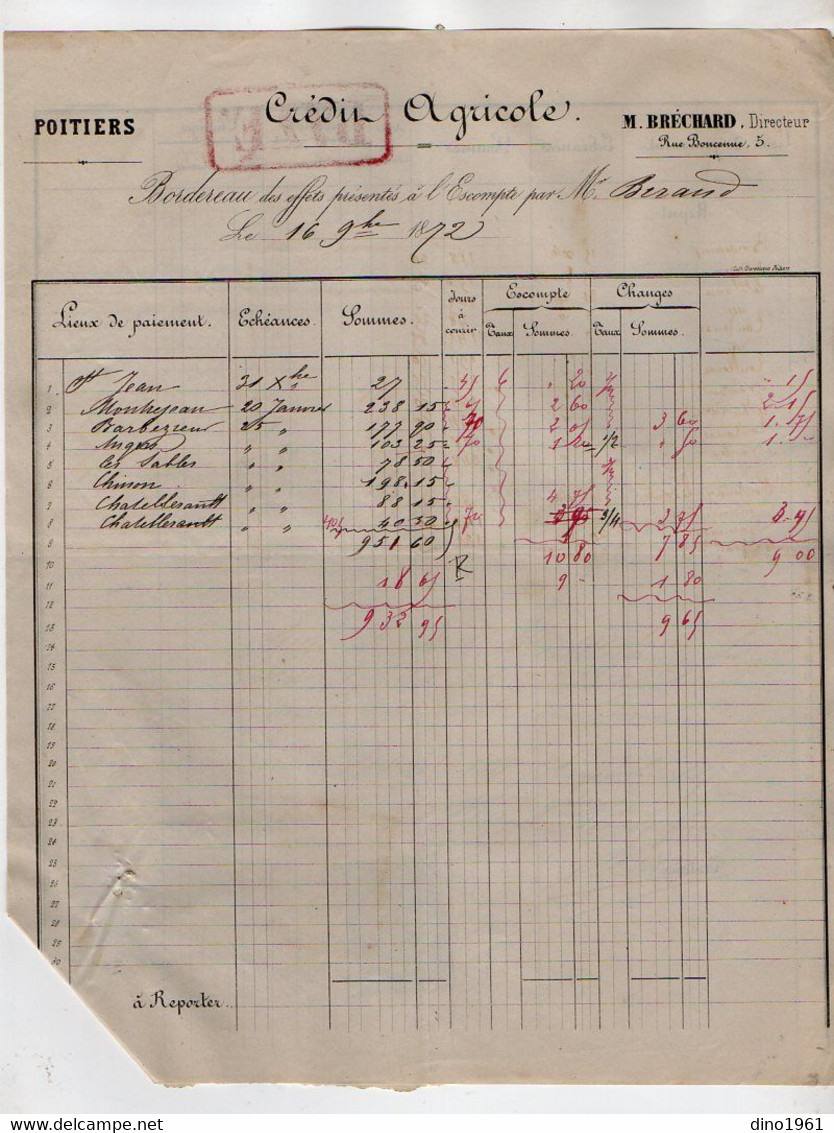 Crédit Agricole.
POITIERS
M. BRÉCHARD, Directeur
Rue Boncenne, 5.
Bordereau des effets présentés à l'Escompte par Mr Beraud
Le 16 9bre 1872
Lieux de paiement. Echéances. Sommes. Jours à courir Escompte Changes
Taux Sommes. Taux Sommes.
1 St Jean 31 Xbre 27 45 6 " 20
2 20 Janvier 238 15 2 60
3 Barbezieux 25 " 177 90 70 2 05 3 60 1.75
4 Angers " " 103 25 70 1 20 1/2 " 50 1.
5 Les Sables " " 78 50
6 Chinon " " 198.15
7 Chatellerault " " 88 15 4 75
8 Chatellerault " " 40 50 72 3/4 3 75
9 951 60 10 80 7 85 9 00
10
11 18 65 9 - 1 80
12
13 932 95 9 65
14
15
16
17
18
19
20
21
22
23
24
25
26
27
28
29
30
à Reporter..
delcampe.net
dino1961